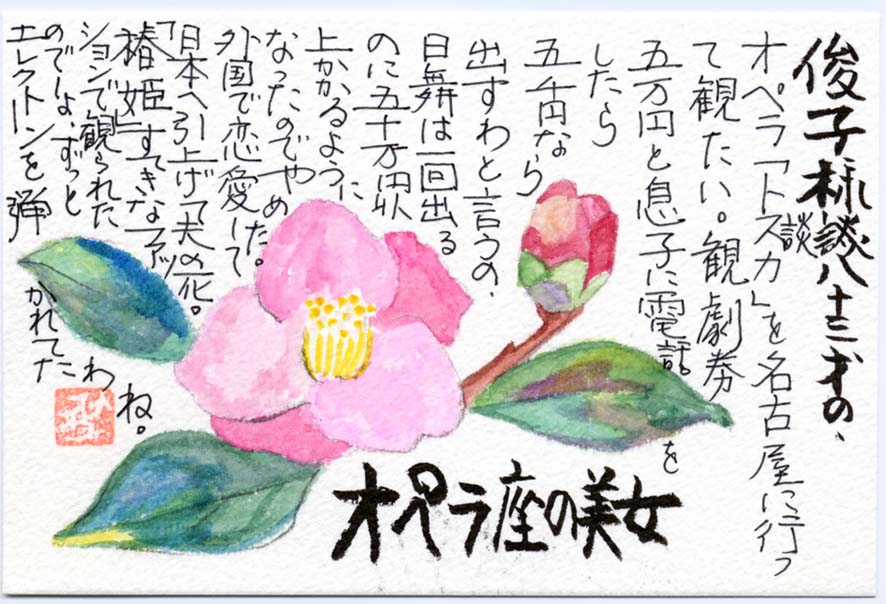 俊子様談八十三才の、
談
オペラ「トスカ」を名古屋に行っ
て観たい。観劇券
五万円と息子に電話を
したら
五千円なら
出すわと言うの、
日舞は一回出る
のに五十万円以
上かかるように
なったのでやめた。
外国で恋愛して
日本へ引上げて夫の死。
「椿姫」すてきなファッ
ションで観られた
のでしょ、ずっと
エレクトーンを弾
かれてた
わ
ね。
オペラ座の美女